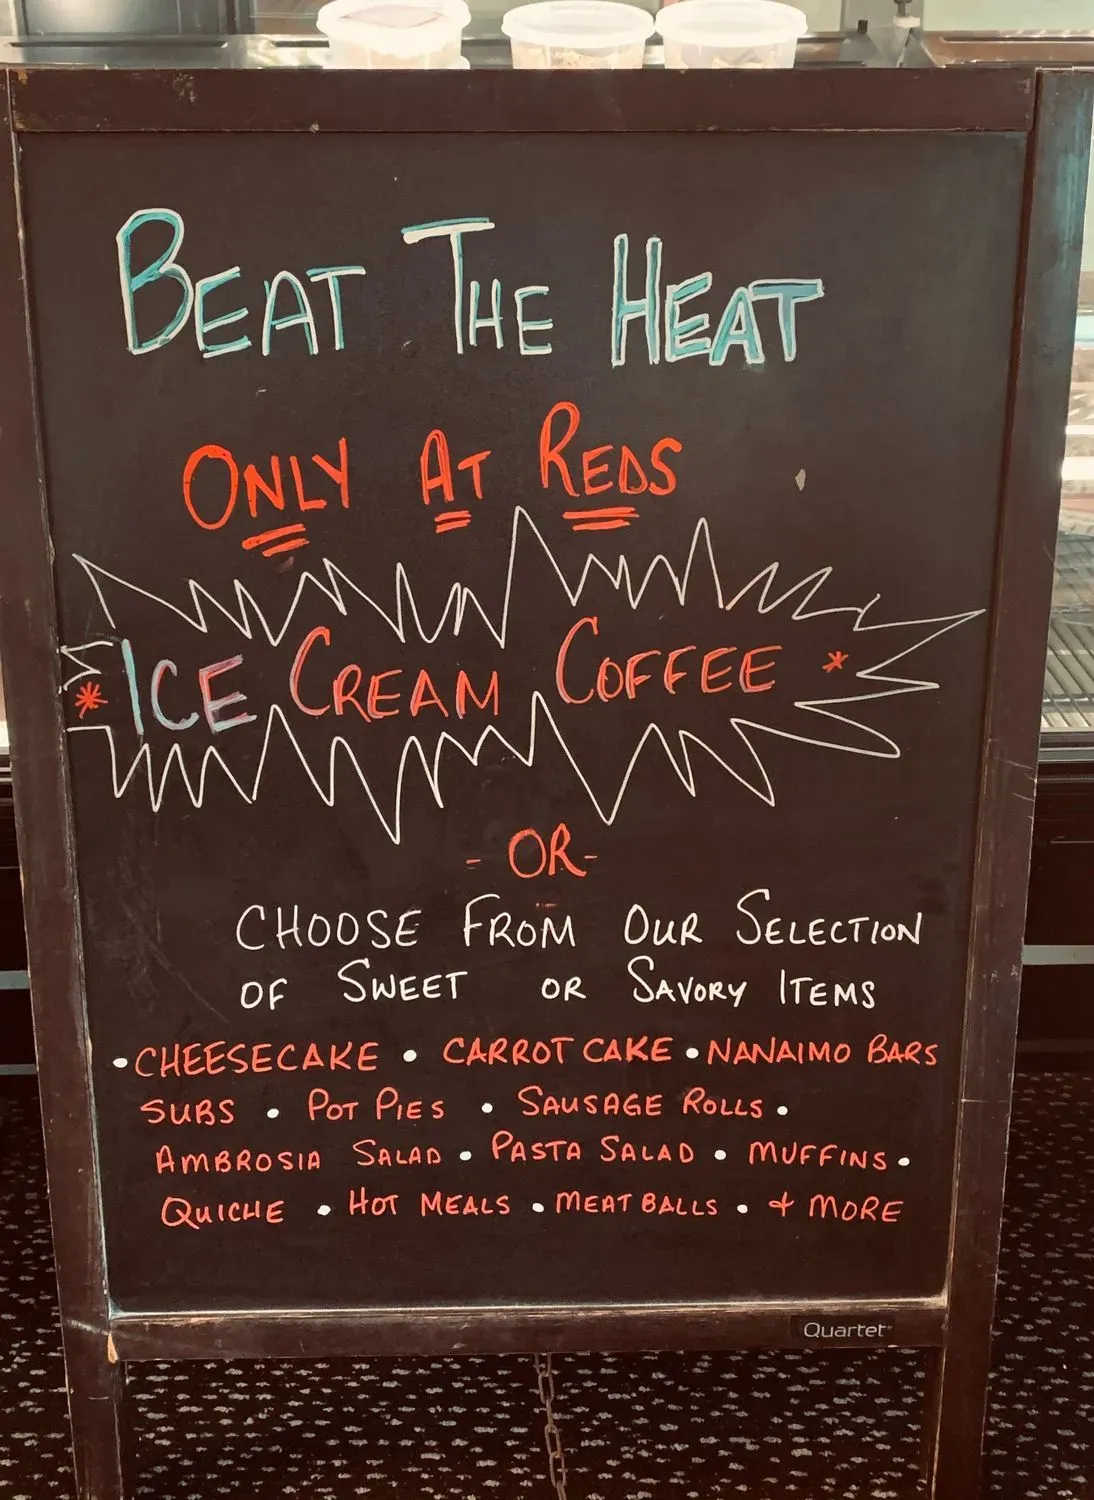 BEAT THE HEAT
ONLY AT REDS
* ICE CREAM COFFEE *
- OR -
CHOOSE FROM OUR SELECTION
OF SWEET OR SAVORY ITEMS
• CHEESECAKE • CARROT CAKE • NANAIMO BARS
SUBS • POT PIES • SAUSAGE ROLLS •
AMBROSIA SALAD • PASTA SALAD • MUFFINS •
QUICHE • HOT MEALS • MEATBALLS • + MORE
Quartet